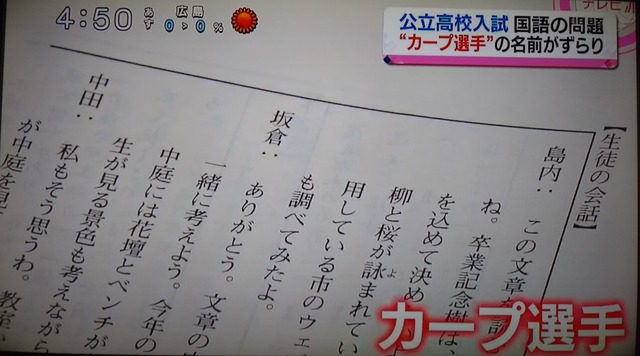 4:50
あす 広島
0 > 0 %
テレビ派
公立高校入試 国語の問題
“カープ選手”の名前がずらり
【生徒の会話】
島内： この文章を読
ね。卒業記念樹は
を込めて決め
柳と桜が詠まれてい
よ
用している市のウェ
も調べてみたよ。
坂倉： ありがとう。文章の
一緒に考えよう。
中庭には花壇とベンチが
生が見る景色も考えながら
中田： 私もそう思うわ。教室
が中庭を見
カープ選手